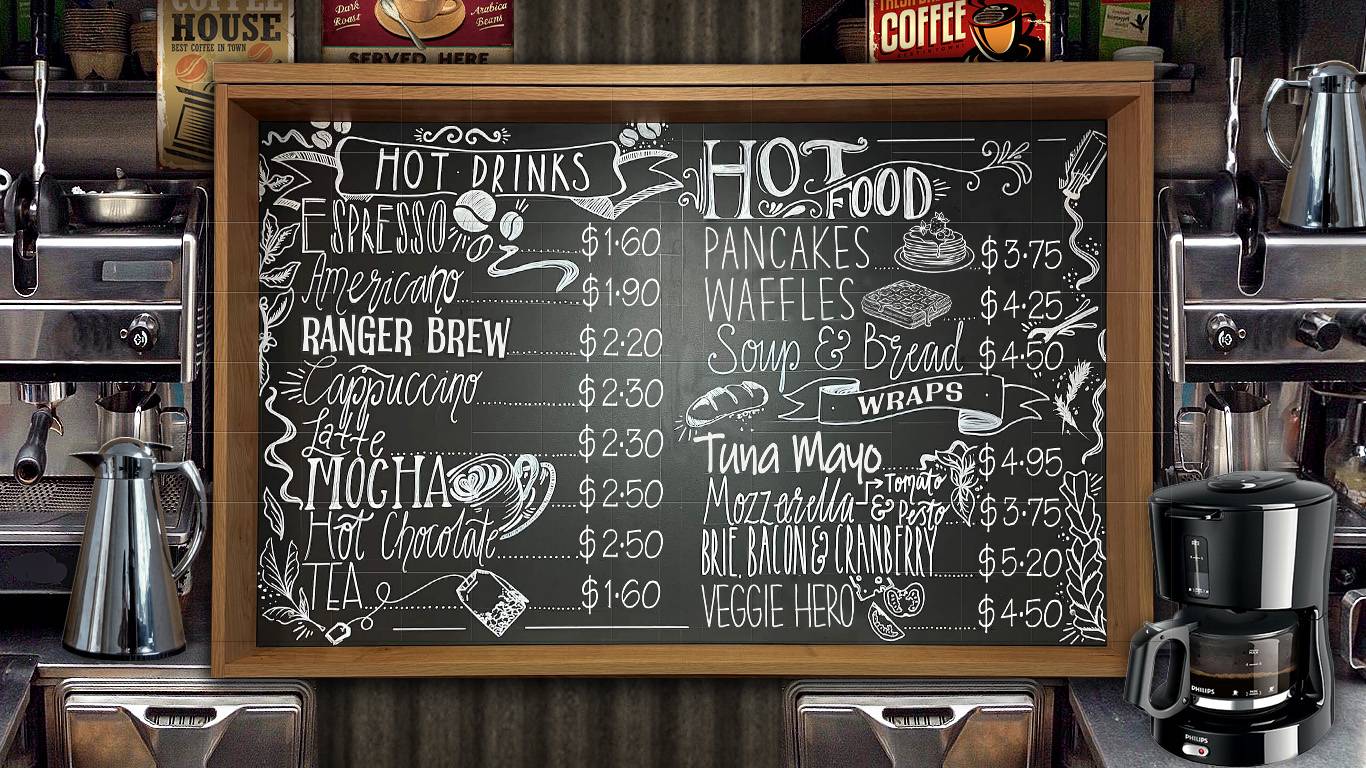 COFFEE
HOUSE
BEST COFFEE IN TOWN
Dark
Roast
Arabica
Beans
SERVED HERE
COFFEE
HOT DRINKS
ESPRESSO $1.60
Americano $1.90
RANGER BREW $2.20
Cappuccino $2.30
Latte $2.30
MOCHA $2.50
Hot Chocolate $2.50
TEA $1.60
HOT
FOOD
PANCAKES $3.75
WAFFLES $4.25
Soup & Bread $4.50
WRAPS
Tuna Mayo $4.95
Mozzarella Tomato & Pesto $3.75
BRIE, BACON & CRANBERRY $5.20
VEGGIE HERO $4.50
PHILIPS
PHILIPS